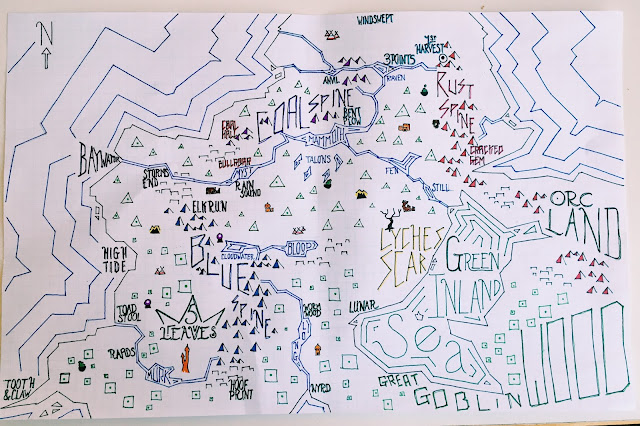 N
WINDSWEPT
1ST
HARVEST
3 POINTS
ANVIL
RAVEN
RUST
SPINE
COAL SPINE
BENT
PLOW
MAMMOTH
CRACKED
GEM
BAYWATER
BULLROAR
TALONS
STORMS
END
MYST
RAIN
BOUND
FEN
STILL
ELKRUN
ORC
LAND
LYCHES
SCAR
GREEN
INLAND
Sea
HIGH
TIDE
BLUE
SPINE
CLOUDWATER
BLOOP
TOAD
STOOL
5
LEAVES
WORM
WOOD
LONG
LUNAR
RAPIDS
MURK
HOOF
PRINT
WYRD
TOOTH
& CLAW
GREAT
GOBLIN WOOD